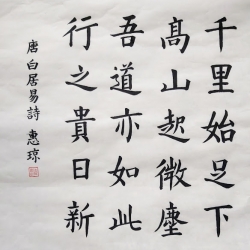 千里始足下
高山起微塵
吾道亦如此
行之貴日新
唐白居易詩 惠琼